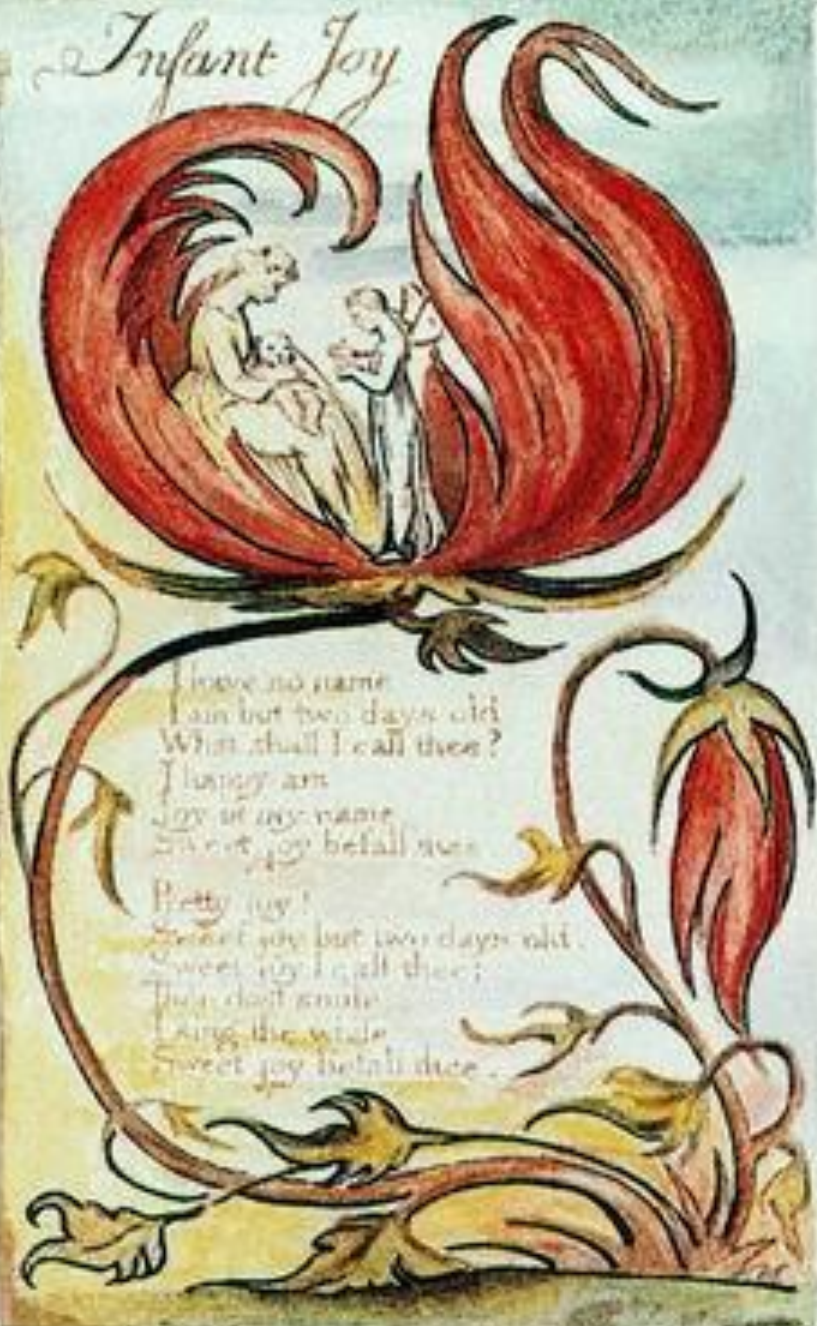 Infant Joy
I have no name
I am but two days old
What shall I call thee?
I happy am
Joy is my name
Sweet joy befall thee
Pretty joy!
Sweet joy but two days old.
Sweet joy I call thee;
Thou dost smile
I sing the while
Sweet joy befall thee.